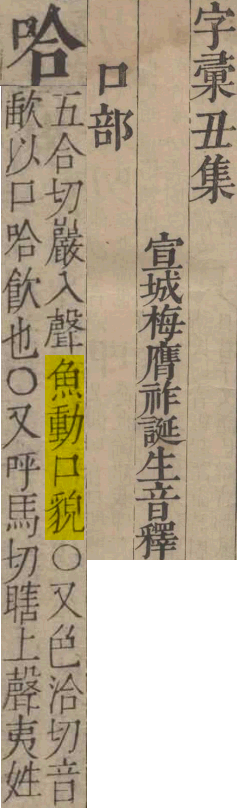 字彙丑集
宣城梅膺祚誕生音釋
口部
哈
五合切巖入聲魚動口貌○又色洽切音
歃以口哈飲也○又呼馬切瞎上聲夷姓